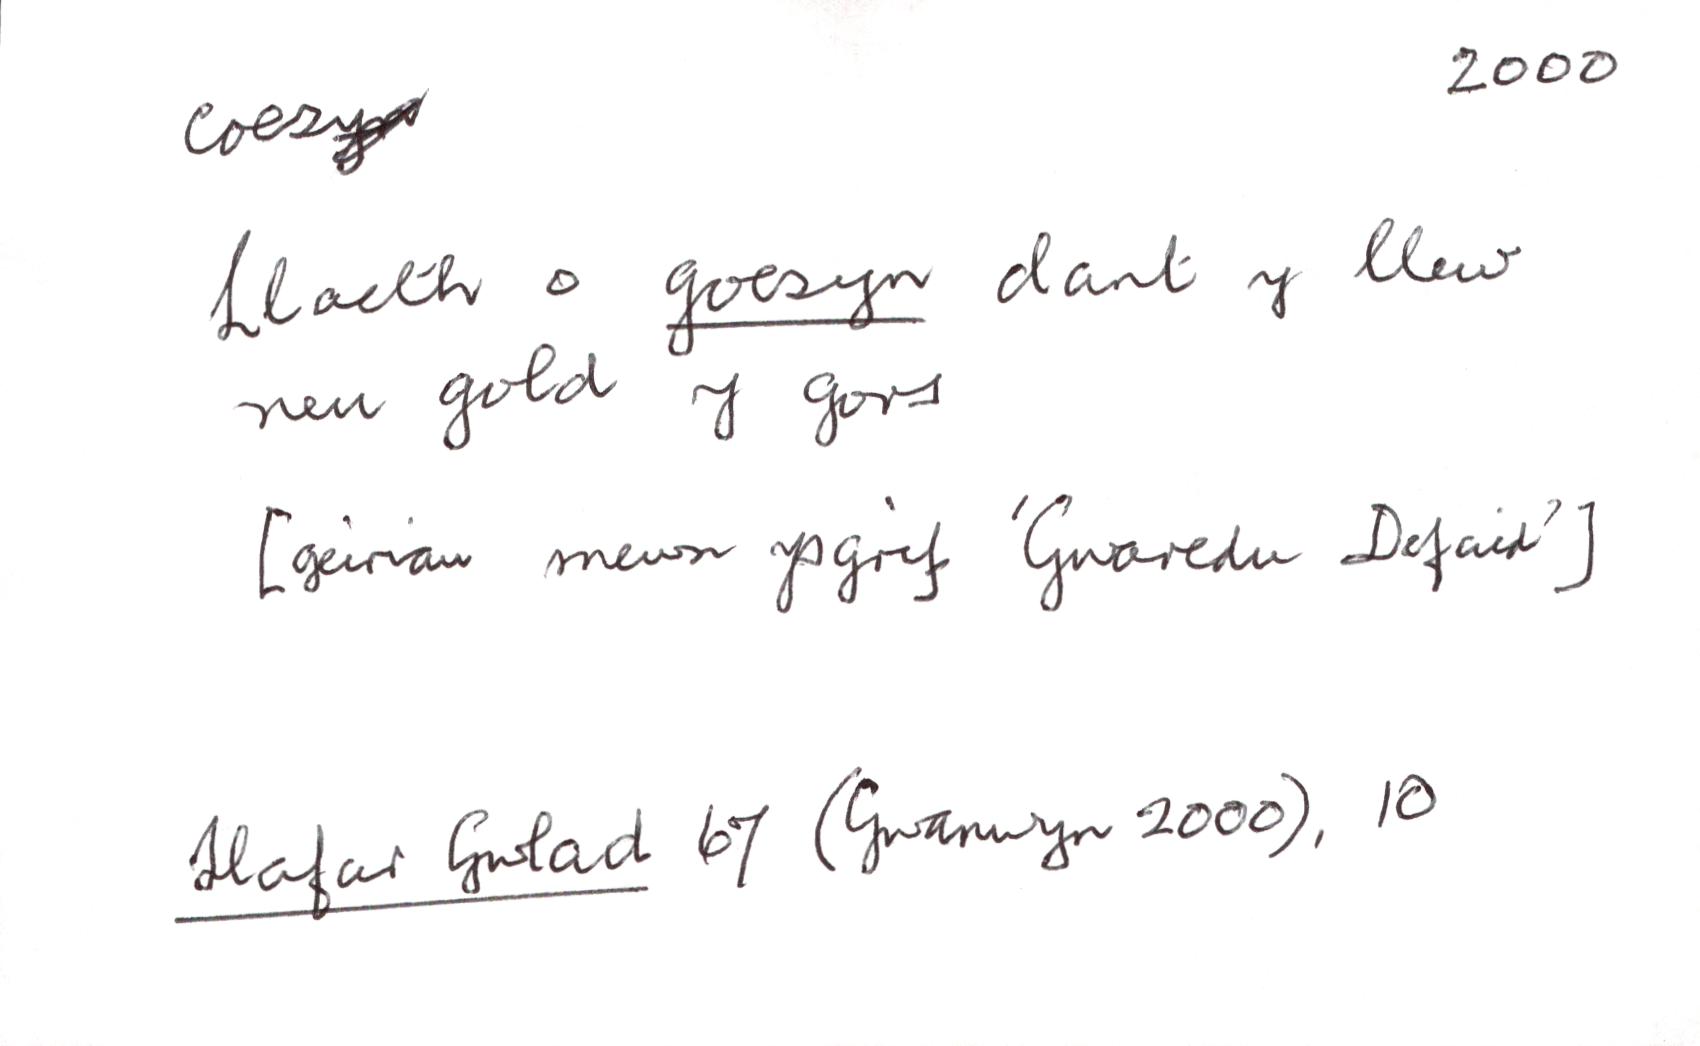 2000
coesyn
Llaeth o goesyn dant y llew
neu gold y gors
[geiriau mewn ysgrif 'Gwaredu Defaid']
Llafar Gwlad 67 (Gwanwyn 2000), 10